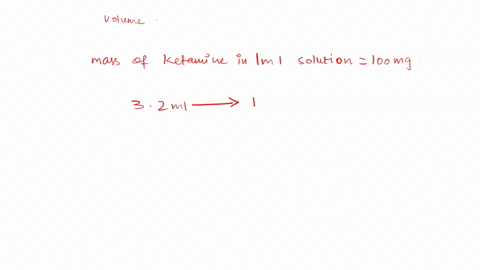 Volume .
mass of ketamine in 1ml solution = 100mg.
3.2ml → 1